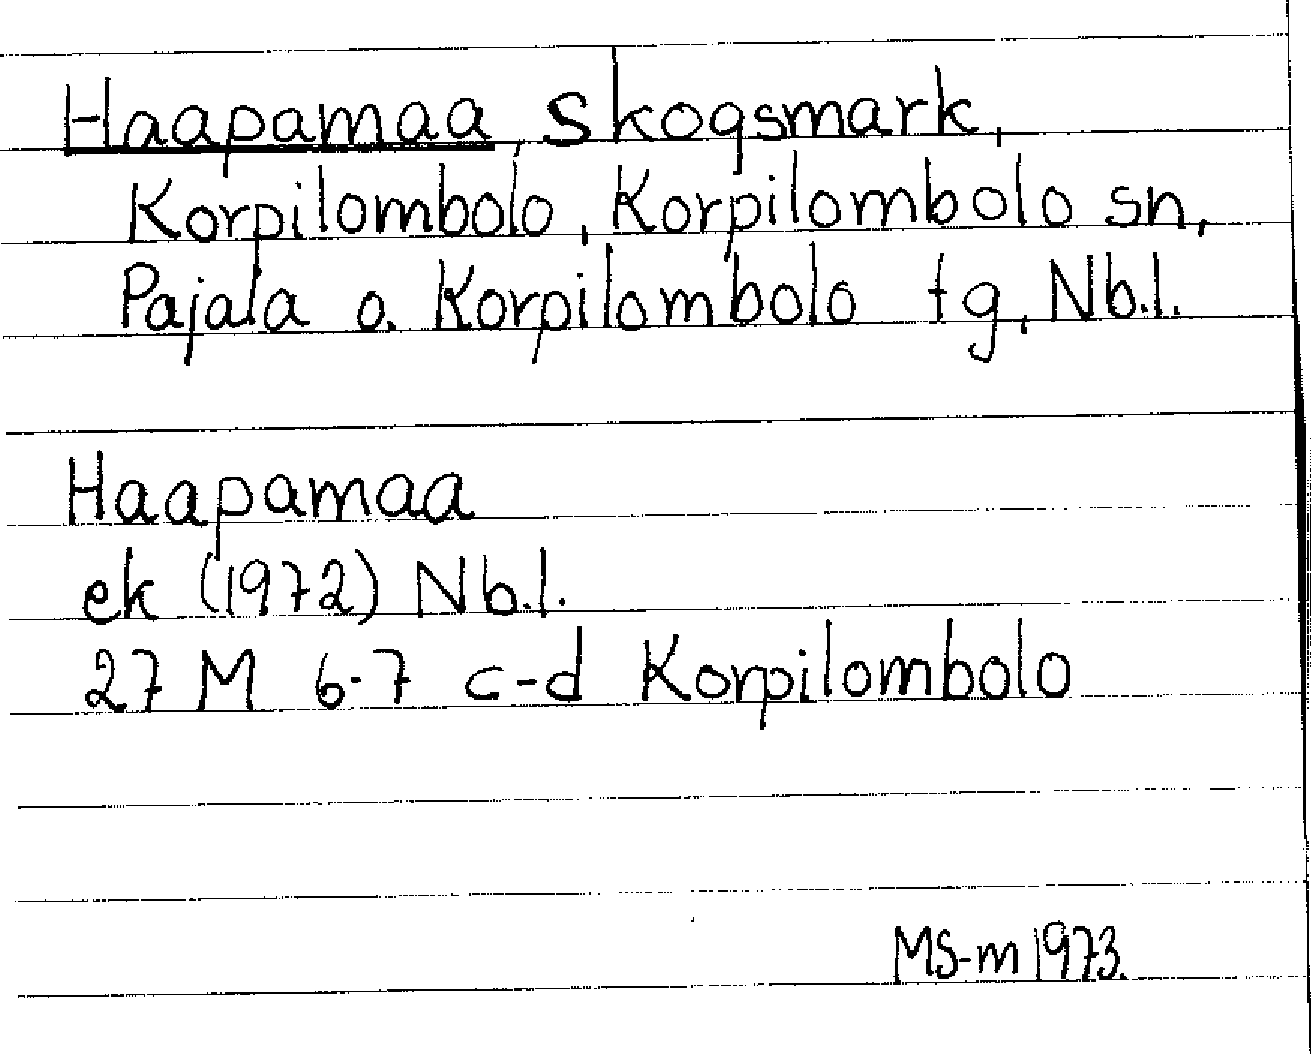 Haapamaa, skogsmark,
Korpilombolo, Korpilombolo sn,
Pajala o. Korpilombolo tg, Nb.l.
Haapamaa
ek (1972) Nb.l.
27 M 6-7 c-d Korpilombolo
MS-m 1973.